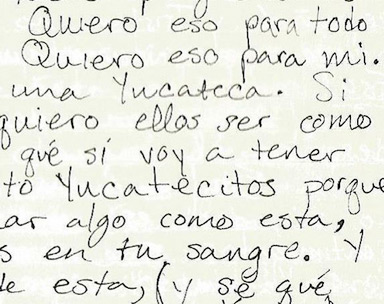 Quiero eso para todo
Quiero eso para mi.
una Yucateca. Si
quiero ellos ser como
qué sí voy a tener
to Yucatecitos porque
ar algo como esta,
s en tu sangre. Y
de esta, (y sé qué